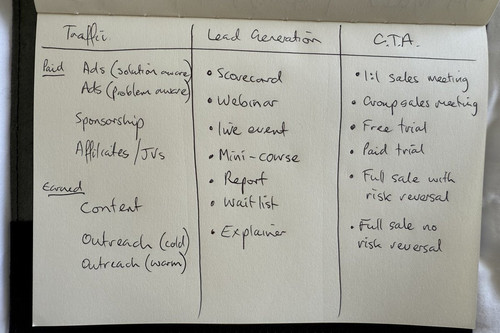 Traffic
Paid
Ads (solution aware)
Ads (problem aware)
Sponsorship
Affiliates / JVs
Earned
Content
Outreach (cold)
Outreach (warm)
Lead Generation
• Scorecard
• Webinar
• live event
• Mini-course
• Report
• Waitlist
• Explainer
C.T.A.
• 1:1 sales meeting
• Group sales meeting
• Free trial
• Paid trial
• Full sale with
risk reversal
• Full sale no
risk reversal